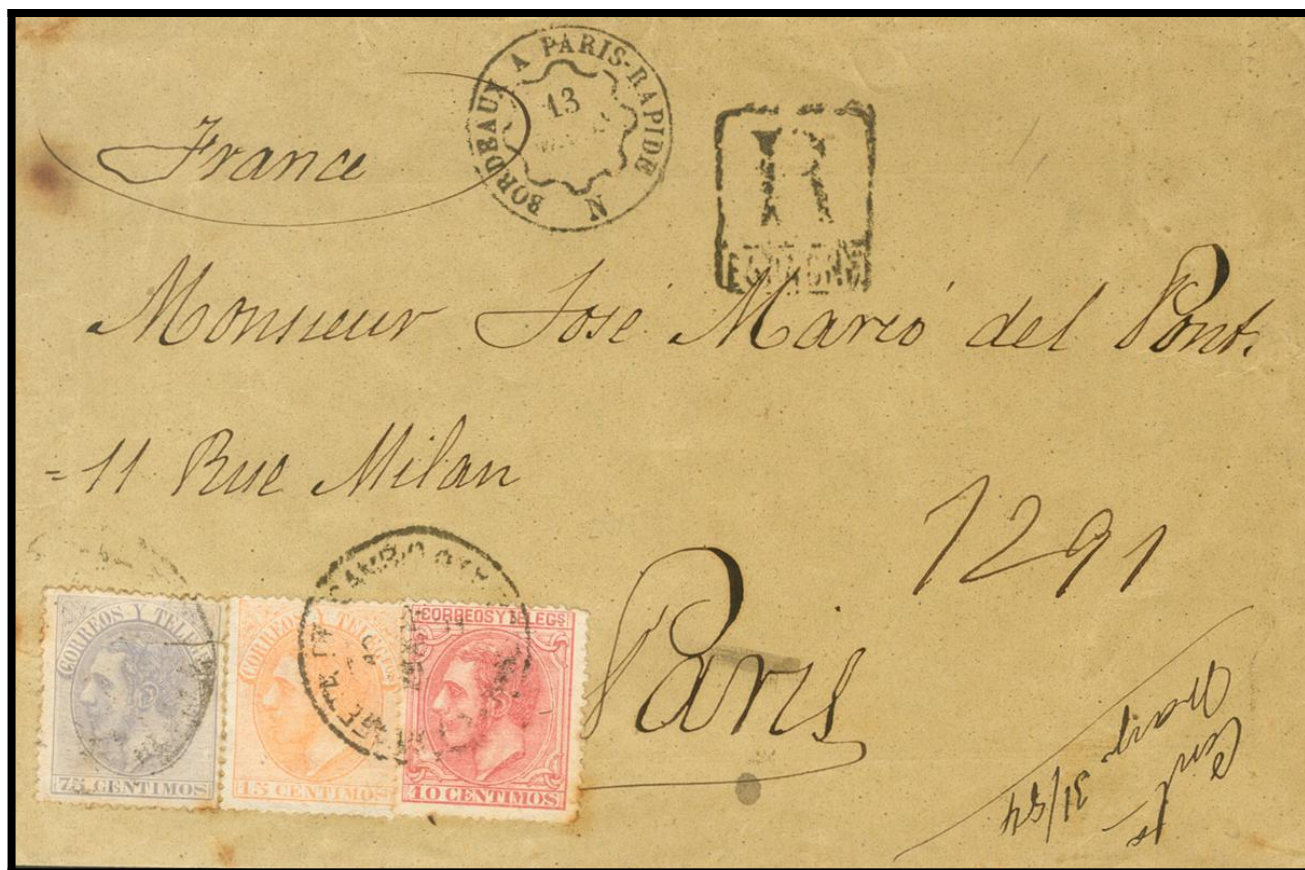 BORDEAUX A PARIS-RAPIDE N
13
France
R
Monsieur José Mario del Pont.
=11 Rue Milan
1291
Paris
CORREOS Y TELEG
75 CENTIMOS
CORREOS Y TELEGFOS
15 CENTIMOS
CORREOS Y TELEGS
10 CENTIMOS
31/54